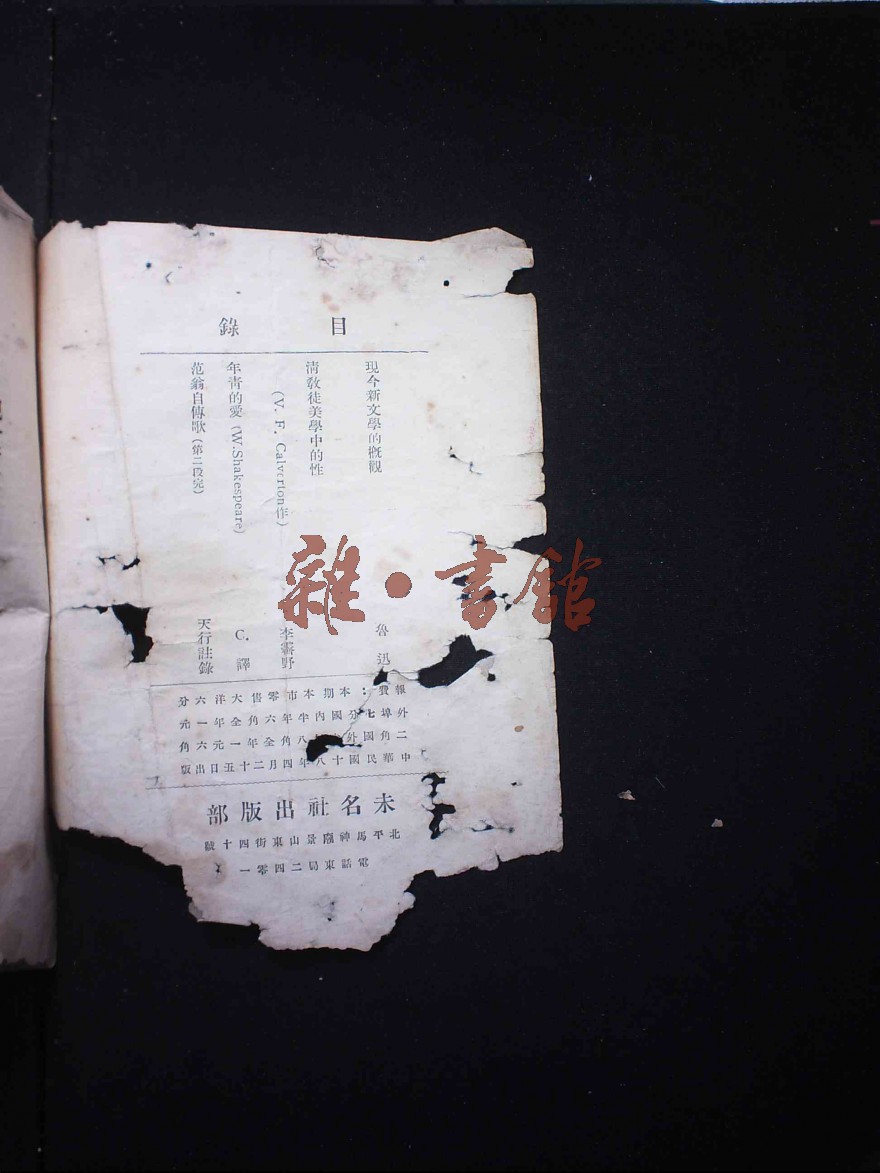 目錄
現今新文學的概觀 魯迅
清教徒美學中的性
(V. F. Calverton作) 李霽野
年青的愛(W.Shakespeare) C. 譯
范翁自傳歌(第二段完) 天行註錄
報費:本期本市零售大洋六分
外埠七分國內半年六角全年一元
二角國外 八角全年一元六角
中華民國十八年四月二十五日出版
未名社出版部
北平馬神廟景山東街四十號
電話東局二四零一
雜·書館